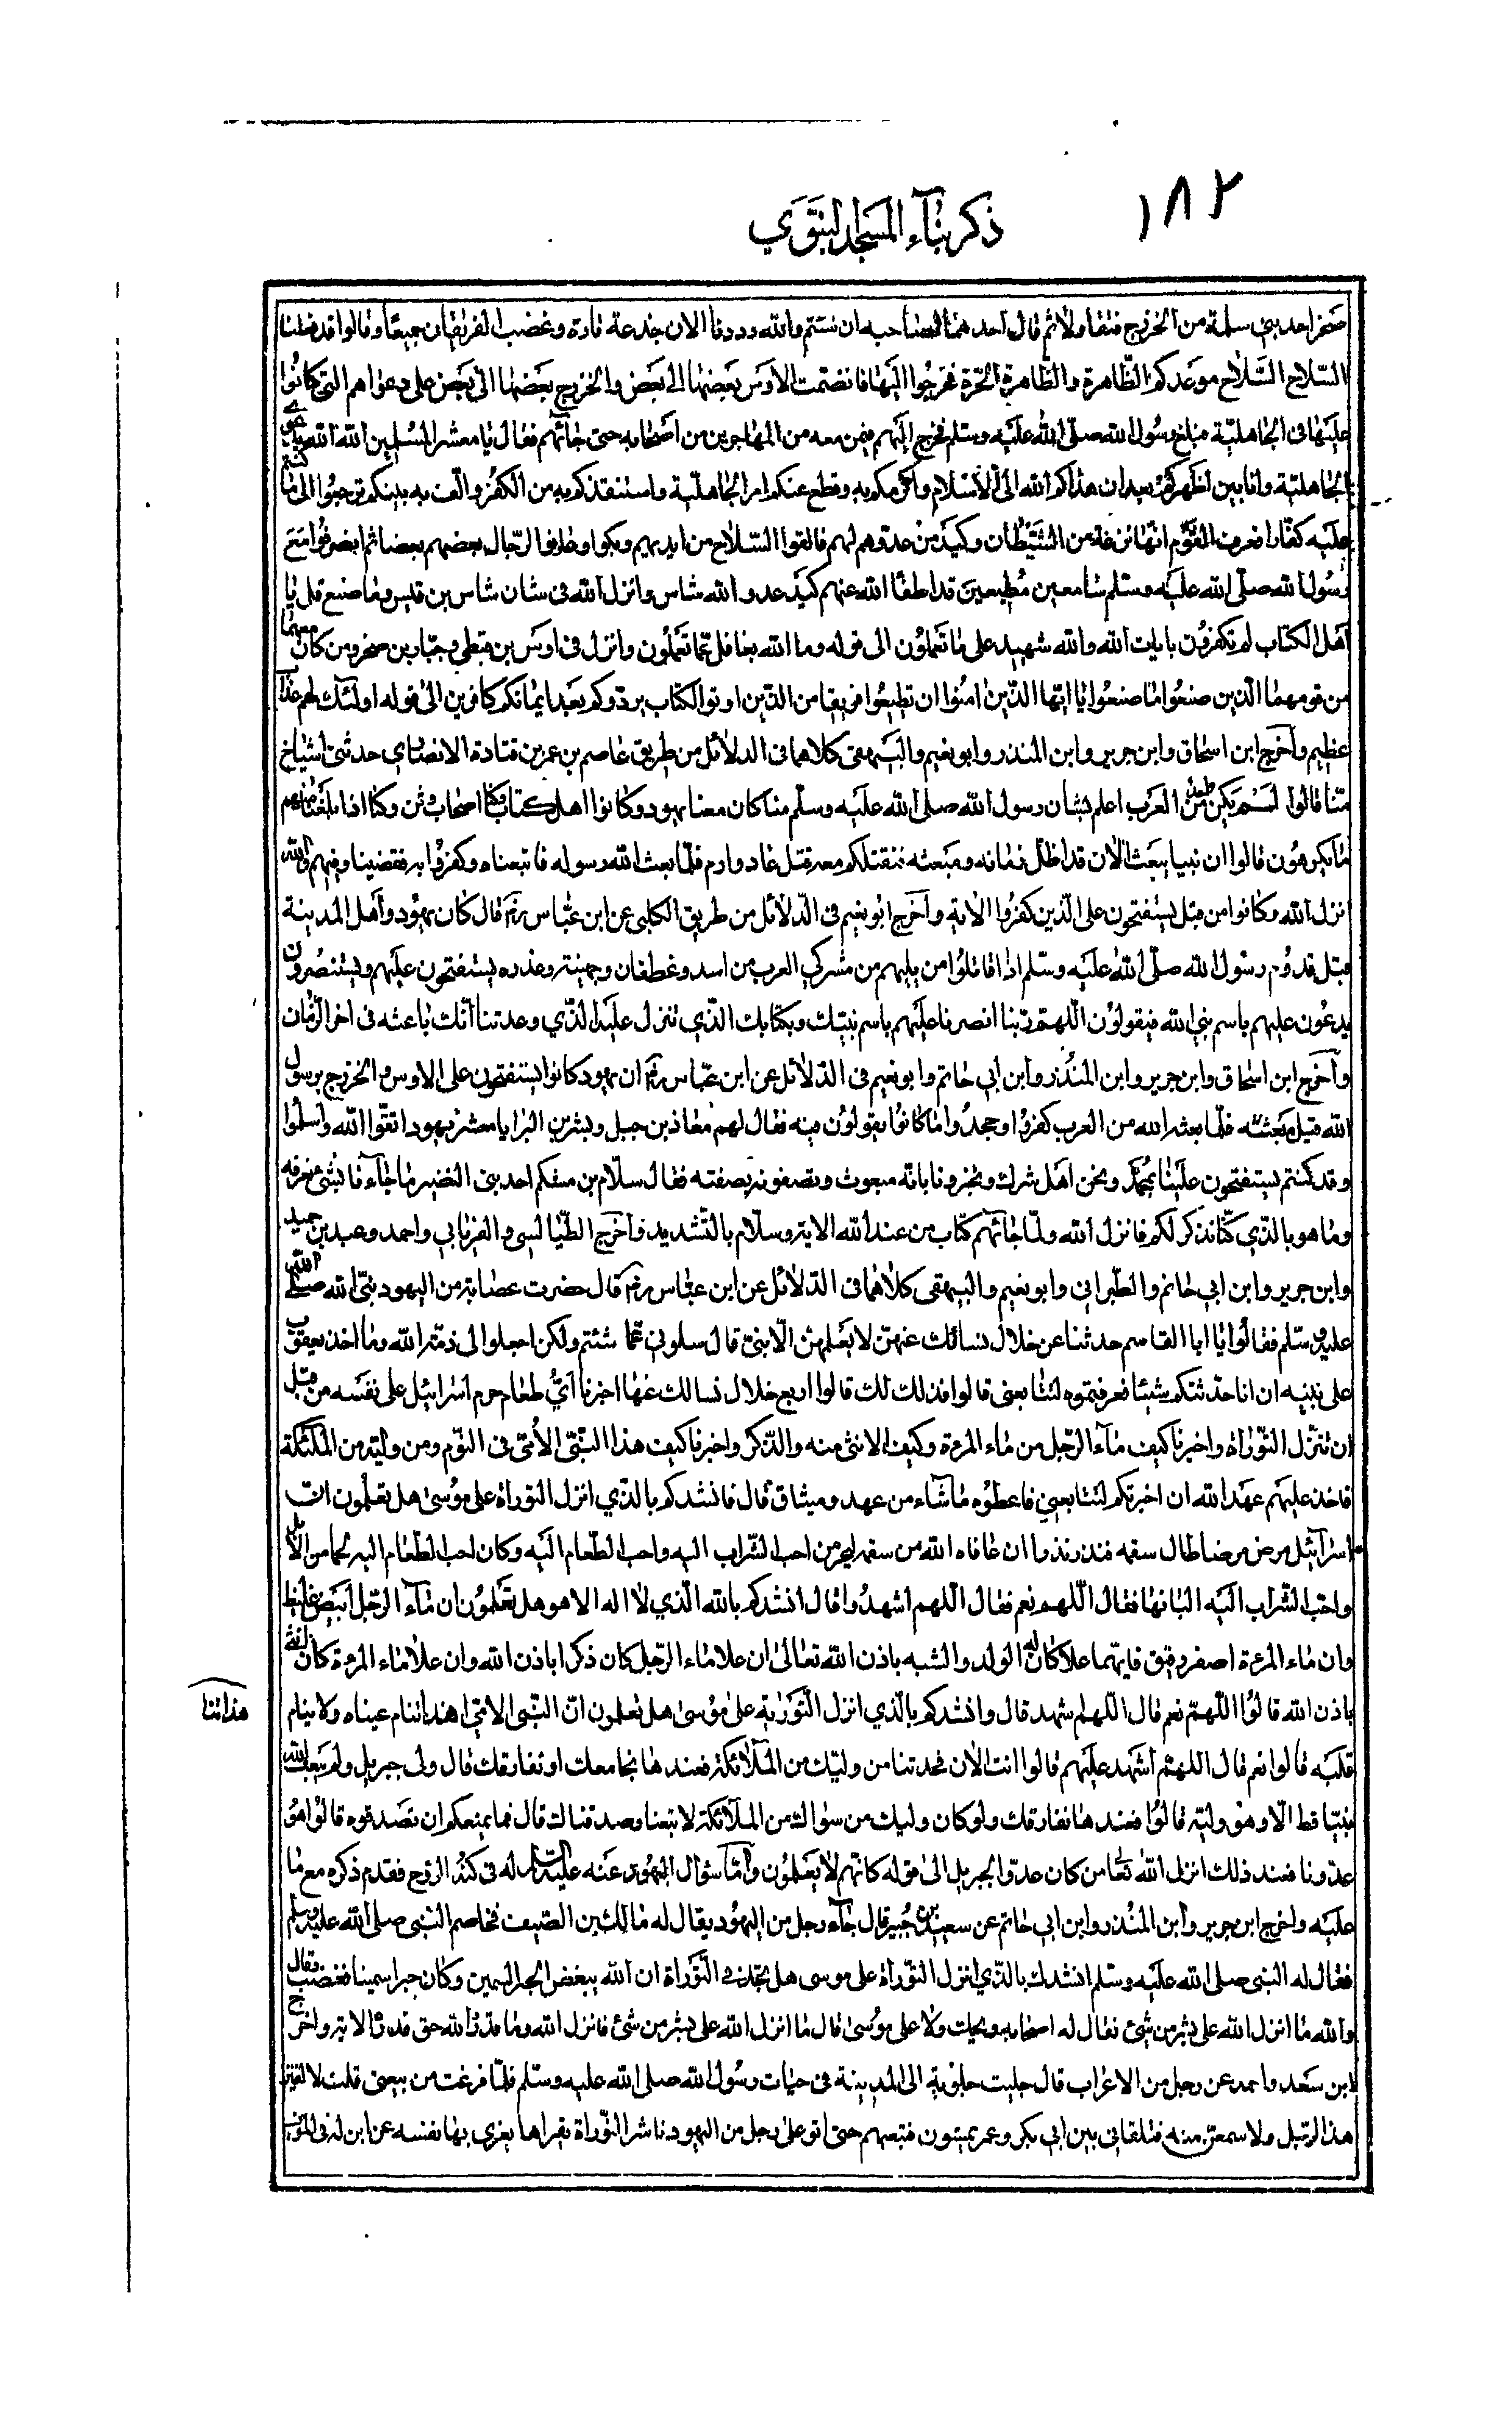 ١٨٢
ذكر بناء المسجد النبوي
صخر احد بني سلمة من الخزرج فتقاولا ثم قال احدهما لصاحبه ان شئتم والله رددنا الان جذعة وغضب الفريقان جميعا وقالوا قد فعلنا
السلاح السلاح موعدكم الظاهرة والظاهرة الحرة فخرجوا اليها فانضمت الاوس بعضها الى بعض والخزرج بعضها الى بعض على دعواهم التي كانوا
عليها في الجاهلية فبلغ رسول الله صلى الله عليه وسلم فخرج اليهم فيمن معه من المهاجرين من اصحابه حتى جائهم فقال يا معشر المسلمين الله الله بدعوى
الجاهلية وانا بين اظهركم بعد ان هداكم الله الى الاسلام واكرمكم به وقطع عنكم امر الجاهلية واستنقذكم به من الكفر والف به بينكم ترجعوا الى ما كنتم
عليه كفارا فعرف القوم انها نزغة من الشيطان وكيد من عدوهم لهم فالقوا السلاح من ايديهم وبكوا وعانقوا الرجال بعضهم بعضا ثم انصرفوا مع
رسول الله صلى الله عليه وسلم سامعين مطيعين قد اطفا الله عنهم كيد عدو الله شاس وانزل الله في شان شاس بن قيس وما صنع قل يا
اهل الكتاب لم تكفرون بايات الله والله شهيد على ما تعملون الى قوله وما الله بغافل عما تعملون وانزل في اوس بن قيظي وجبار بن صخر ومن كان معهما
من قومهما الذين صنعوا ما صنعوا يا ايها الذين امنوا ان تطيعوا فريقا من الذين اوتوا الكتاب يردوكم بعد ايمانكم كافرين الى قوله اولئك لهم عذاب
عظيم واخرج ابن اسحاق وابن جرير وابن المنذر وابو نعيم والبيهقي كلاهما في الدلائل من طريق عاصم بن عمر بن قتادة الانصاري حدثني اشياخ
منا قالوا لم يكن من العرب اعلم بشان رسول الله صلى الله عليه وسلم منا كان معنا يهود وكانوا اهل كتاب وكنا اصحاب وثن وكنا اذا بلغنا منهم
ما يكرهون قالوا ان نبيا يبعث الان قد اظل زمانه ومبعثه نقتلكم معه قتل عاد وارم فلما بعث الله رسوله فاتبعناه وكفروا به ففينا وفيهم والله
انزل الله وكانوا من قبل يستفتحون على الذين كفروا الاية واخرج ابو نعيم في الدلائل من طريق الكلبي عن ابن عباس رضي قال كان يهود واهل المدينة
قبل قدوم رسول الله صلى الله عليه وسلم اذا قاتلوا من يليهم من مشركي العرب من اسد وغطفان وجهينة وعذره يستفتحون عليهم ويستنصرون
يدعون عليهم باسم نبي الله فيقولون اللهم ربنا انصرنا عليهم باسم نبيك وبكتابك الذي تنزل عليه الذي وعدتنا انك باعثه في اخر الزمان
واخرج ابن اسحاق وابن جرير وابن المنذر وابن ابي حاتم وابو نعيم في الدلائل عن ابن عباس رضي ان يهود كانوا يستفتحون على الاوس والخزرج برسول
الله قبل مبعثه فلما بعثه الله من العرب كفروا وجحدوا ما كانوا يقولون فيه فقال لهم معاذ بن جبل وبشر بن البرا يا معشر يهود اتقوا الله واسلموا
وقد كنتم تستفتحون علينا بمحمد ونحن اهل شرك وتخبرونا بانه مبعوث وتصفونه بصفته فقال سلام بن مشكم احد بني النضير ما جاءنا بشئ نعرفه
وما هو بالذي كنا نذكر لكم فانزل الله ولما جائهم كتاب من عند الله الاية وسلام بالتشديد واخرج الطيالسي والفريابي واحمد وعبد بن حميد
وابن جرير وابن ابي حاتم والطبراني وابو نعيم والبيهقي كلاهما في الدلائل عن ابن عباس رضي قال حضرت عصابة من اليهود نبي الله صلى الله
عليه وسلم فقالوا يا ابا القاسم حدثنا عن خلال نسالك عنهن لا يعلمهن الا نبي قال سلوني عما شئتم ولكن اجعلوا لي ذمة الله وما اخذ يعقوب
على بنيه ان انا حدثتكم شيئا فعرفتموه لتتابعني قالوا فذلك لك قالوا اربع خلال نسالك عنها اخبرنا اي طعام حرم اسرائيل على نفسه من قبل
ان تنزل التوراة واخبرنا كيف ماء الرجل من ماء المرءة وكيف الانثى منه والذكر واخبرنا كيف هذا النبي الامي في النوم ومن وليه من الملئكة
فاخذ عليهم عهد الله ان اخبرتكم لتتابعني فاعطوه ما شاء من عهد وميثاق قال فانشدكم بالذي انزل التوراة على موسى هل تعلمون ان
اسرائيل مرض مرضا طال سقمه فنذر نذرا ان عافاه الله من سقمه ليحرمن احب الشراب اليه واحب الطعام اليه وكان احب الطعام اليه لحمان الابل
واحب الشراب اليه البانها فقال اللهم نعم فقال اللهم اشهد وقال انشدكم بالله الذي لا اله الا هو هل تعلمون ان ماء الرجل ابيض غليظ
وان ماء المرءة اصفر رقيق فايهما علا كان له الولد والشبه باذن الله تعالى ان علا ماء الرجل كان ذكرا باذن الله وان علا ماء المرءة كان انثى
باذن الله قالوا اللهم نعم قال اللهم اشهد قال وانشدكم بالذي انزل التورية على موسى هل تعلمون ان النبي الامي هذا تنام عيناه ولا ينام
قلبه قالوا نعم قال اللهم اشهد عليهم قالوا انت الان فحدثنا من وليك من الملائكة فعندها نجامعك او نفارقك قال ولي جبريل ولم يبعث الله
نبيا قط الا وهو وليه قالوا فعندها نفارقك ولو كان وليك من سواك من الملائكة لاتبعنا وصدقناك قال فما يمنعكم ان تصدقوه قالوا هو
عدونا فعند ذلك انزل الله تعالى من كان عدوا لجبريل الى قوله كانهم لا يعلمون واما سؤال اليهود عنه عليه السلام الروح فقدم ذكره مع ما
عليه واخرج ابن جرير وابن المنذر وابن ابي حاتم عن سعيد بن جبير قال جاء رجل من اليهود يقال له مالك بن الصيف فخاصم النبي صلى الله عليه وسلم
فقال له النبي صلى الله عليه وسلم انشدك بالذي انزل التوراة على موسى هل تجد في التوراة ان الله يبغض الحبر السمين وكان حبرا سمينا فغضب وقال
والله ما انزل الله على بشر من شئ فقال له اصحابه ويحك ولا على موسى قال ما انزل الله على بشر من شئ فانزل الله وما قدروا الله حق قدره الاية واخرج
ابن سعد واحمد عن رجل من الاعراب قال جلبت حلوبة الى المدينة في حيات رسول الله صلى الله عليه وسلم فلما فرغت من بيعتي قلت لالقين
هذا الرجل ولاسمعن منه فتلقاني بين ابي بكر وعمر يمشون فتبعتهم حتى اتو على رجل من اليهود ناشر التوراة يقراها يعزي بها نفسه عن ابن له في الموت
هذا تنا